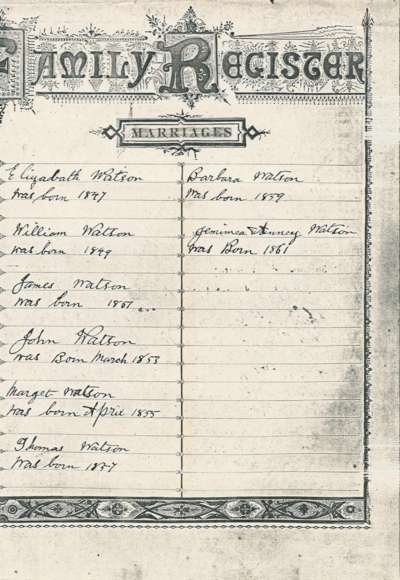 FAMILY REGISTER
MARRIAGES
Elizabath Watson
was born 1847
William Watson
was born 1849
James Watson
was born 1851
John Watson
was Born March 1853
Marget Watson
was born Aprie 1855
Thomas Watson
was born 1857
Barbara Watson
was born 1859
Jemimea & Watson
was Born 1861